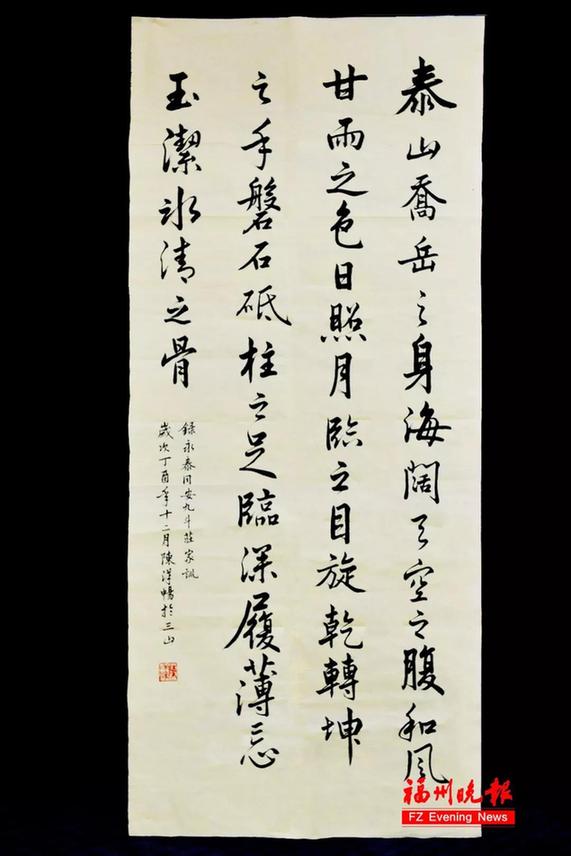 泰山喬岳之身海闊天空之腹和風
甘雨之色日照月臨之目旋乾轉坤
之手磐石砥柱之足臨深履薄之心
玉潔冰清之骨
錄永泰同安九斗莊家訓
歲次丁酉年十二月陳於三山
福州晚报
FZ Evening News